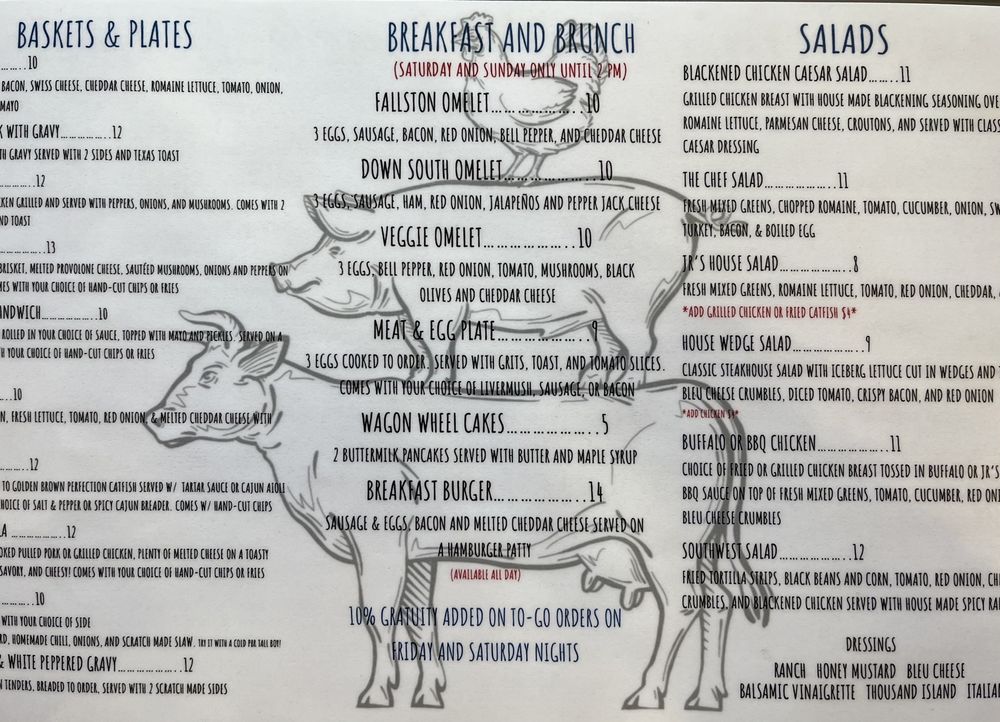 BASKETS & PLATES
.....10
BACON, SWISS CHEESE, CHEDDAR CHEESE, ROMAINE LETTUCE, TOMATO, ONION,
MAYO
WITH GRAVY...............12
GRAVY SERVED WITH 2 SIDES AND TEXAS TOAST
.........12
GRILLED AND SERVED WITH PEPPERS, ONIONS, AND MUSHROOMS. COMES WITH 2
TOAST
...................13
BRISKET, MELTED PROVOLONE CHEESE, SAUTÉED MUSHROOMS, ONIONS AND PEPPERS ON
WITH YOUR CHOICE OF HAND-CUT CHIPS OR FRIES
...............10
ROLLED IN YOUR CHOICE OF SAUCE, TOPPED WITH MAYO AND PICKLES. SERVED ON A
YOUR CHOICE OF HAND-CUT CHIPS OR FRIES
....10
FRESH LETTUCE, TOMATO, RED ONION, & MELTED CHEDDAR CHEESE WITH
........12
TO GOLDEN BROWN PERFECTION CATFISH SERVED W/ TARTAR SAUCE OR CAJUN AIOLI
OF SALT & PEPPER OR SPICY CAJUN BREADER. COMES W/ HAND-CUT CHIPS
................12
PULLED PORK OR GRILLED CHICKEN, PLENTY OF MELTED CHEESE ON A TOASTY
SAVORY, AND CHEESY! COMES WITH YOUR CHOICE OF HAND-CUT CHIPS OR FRIES
.........10
YOUR CHOICE OF SIDE
HOMEMADE CHILI, ONIONS, AND SCRATCH MADE SLAW. TRY IT WITH A COLD PBR TALL BOY!
& WHITE PEPPERED GRAVY..................12
TENDERS, BREADED TO ORDER, SERVED WITH 2 SCRATCH MADE SIDES
BREAKFAST AND BRUNCH
(SATURDAY AND SUNDAY ONLY UNTIL 2 PM)
FALLSTON OMELET..................10
3 EGGS, SAUSAGE, BACON, RED ONION, BELL PEPPER, AND CHEDDAR CHEESE
DOWN SOUTH OMELET..................10
3 EGGS, SAUSAGE, HAM, RED ONION, JALAPEÑOS AND PEPPER JACK CHEESE
VEGGIE OMELET.................10
3 EGGS, BELL PEPPER, RED ONION, TOMATO, MUSHROOMS, BLACK
OLIVES AND CHEDDAR CHEESE
MEAT & EGG PLATE..................9
3 EGGS COOKED TO ORDER. SERVED WITH GRITS, TOAST, AND TOMATO SLICES.
COMES WITH YOUR CHOICE OF LIVERMUSH, SAUSAGE, OR BACON
WAGON WHEEL CAKES.................5
2 BUTTERMILK PANCAKES SERVED WITH BUTTER AND MAPLE SYRUP
BREAKFAST BURGER..................14
SAUSAGE & EGGS, BACON AND MELTED CHEDDAR CHEESE SERVED ON
A HAMBURGER PATTY
(AVAILABLE ALL DAY)
10% GRATUITY ADDED ON TO-GO ORDERS ON
FRIDAY AND SATURDAY NIGHTS
SALADS
BLACKENED CHICKEN CAESAR SALAD........11
GRILLED CHICKEN BREAST WITH HOUSE MADE BLACKENING SEASONING
ROMAINE LETTUCE, PARMESAN CHEESE, CROUTONS, AND SERVED WITH
CAESAR DRESSING
THE CHEF SALAD..................11
FRESH MIXED GREENS, CHOPPED ROMAINE, TOMATO, CUCUMBER, ONION,
TURKEY, BACON, & BOILED EGG
JR'S HOUSE SALAD.................8
FRESH MIXED GREENS, ROMAINE LETTUCE, TOMATO, RED ONION, CHEDDAR,
*ADD GRILLED CHICKEN OR FRIED CATFISH $4*
HOUSE WEDGE SALAD.................9
CLASSIC STEAKHOUSE SALAD WITH ICEBERG LETTUCE CUT IN WEDGES AND
BLEU CHEESE CRUMBLES, DICED TOMATO, CRISPY BACON, AND RED ONION
*ADD CHICKEN $4*
BUFFALO OR BBQ CHICKEN.................11
CHOICE OF FRIED OR GRILLED CHICKEN BREAST TOSSED IN BUFFALO OR JR'S
BBQ SAUCE ON TOP OF FRESH MIXED GREENS, TOMATO, CUCUMBER, RED
BLEU CHEESE CRUMBLES
SOUTHWEST SALAD.................12
FRIED TORTILLA STRIPS, BLACK BEANS AND CORN, TOMATO, RED ONION,
CRUMBLES, AND BLACKENED CHICKEN SERVED WITH HOUSE MADE SPICY
DRESSINGS
RANCH HONEY MUSTARD BLEU CHEESE
BALSAMIC VINAIGRETTE THOUSAND ISLAND ITALIAN